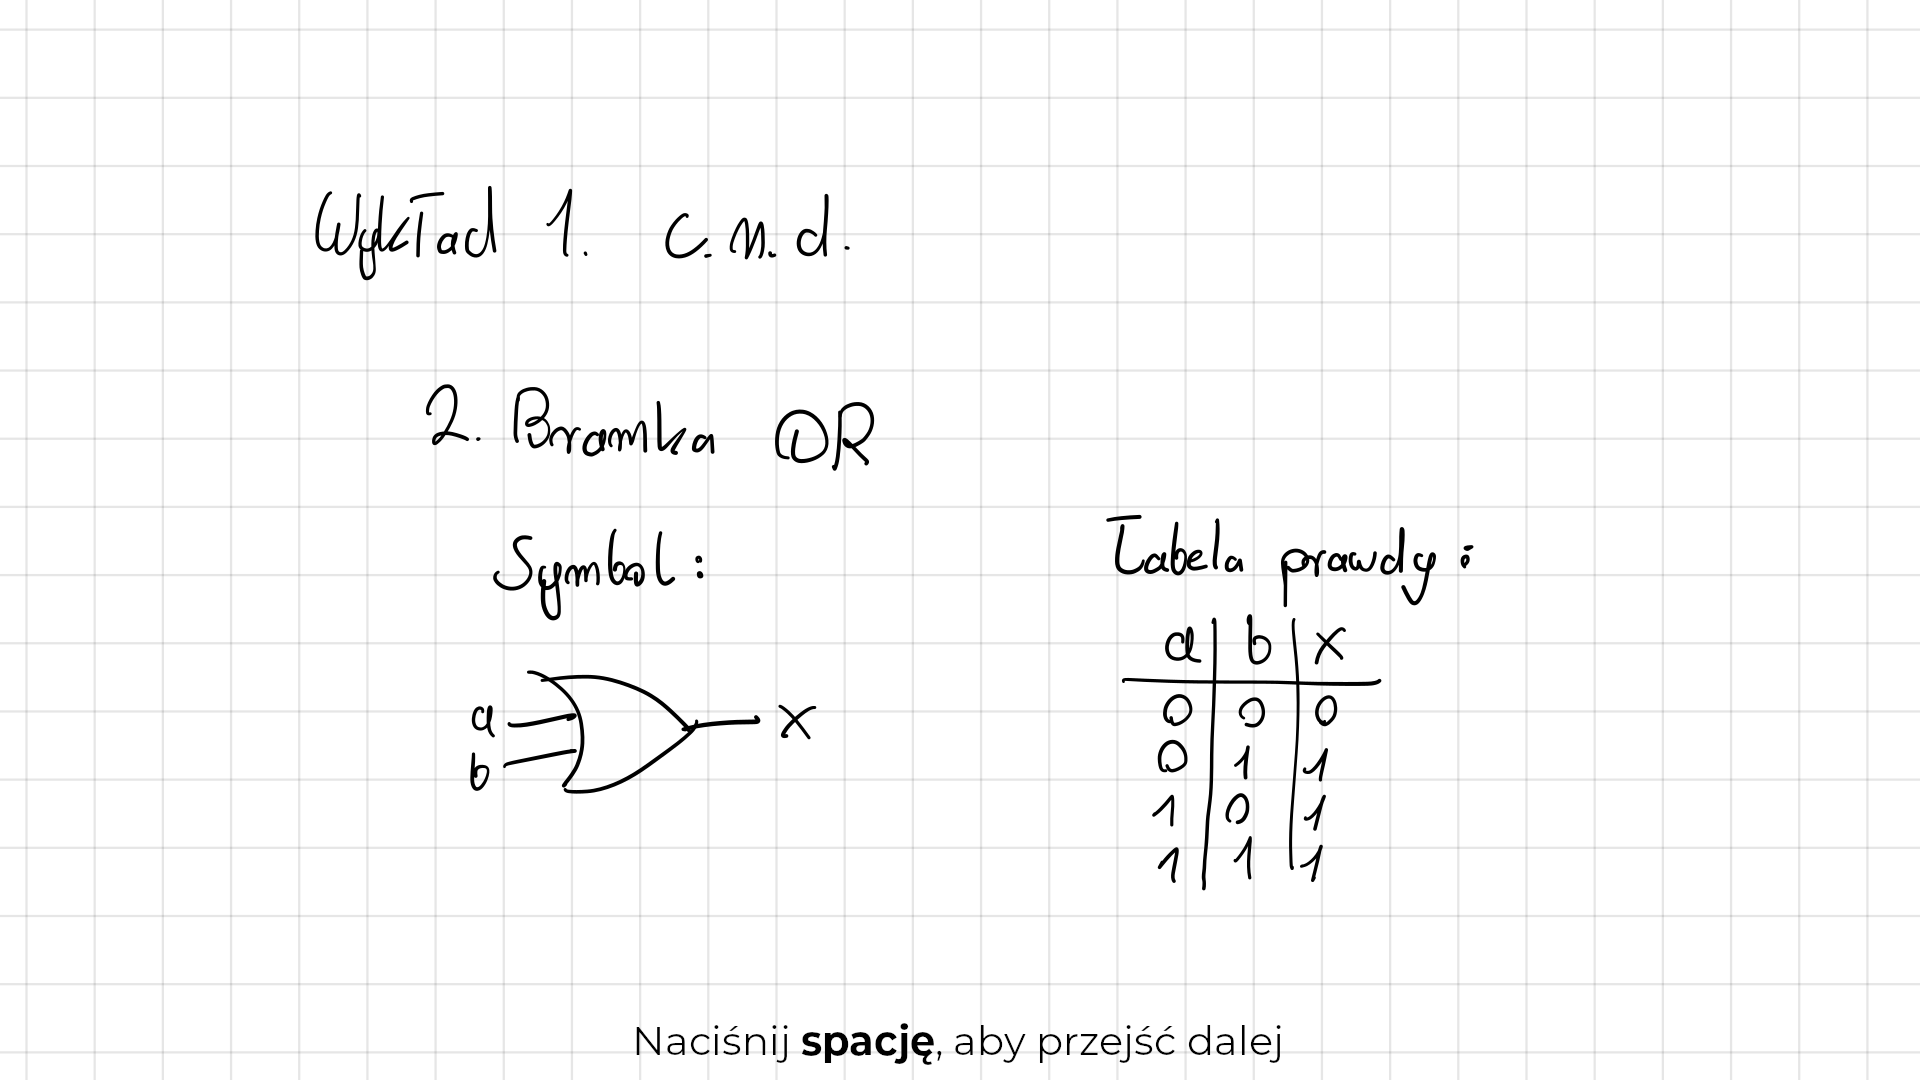 Wykład 1. c.n.d.
2. Bramka OR
Symbol:
a
b
x
Tabela prawdy:
a b x
0 0 0
0 1 1
1 0 1
1 1 1
Naciśnij spację, aby przejść dalej